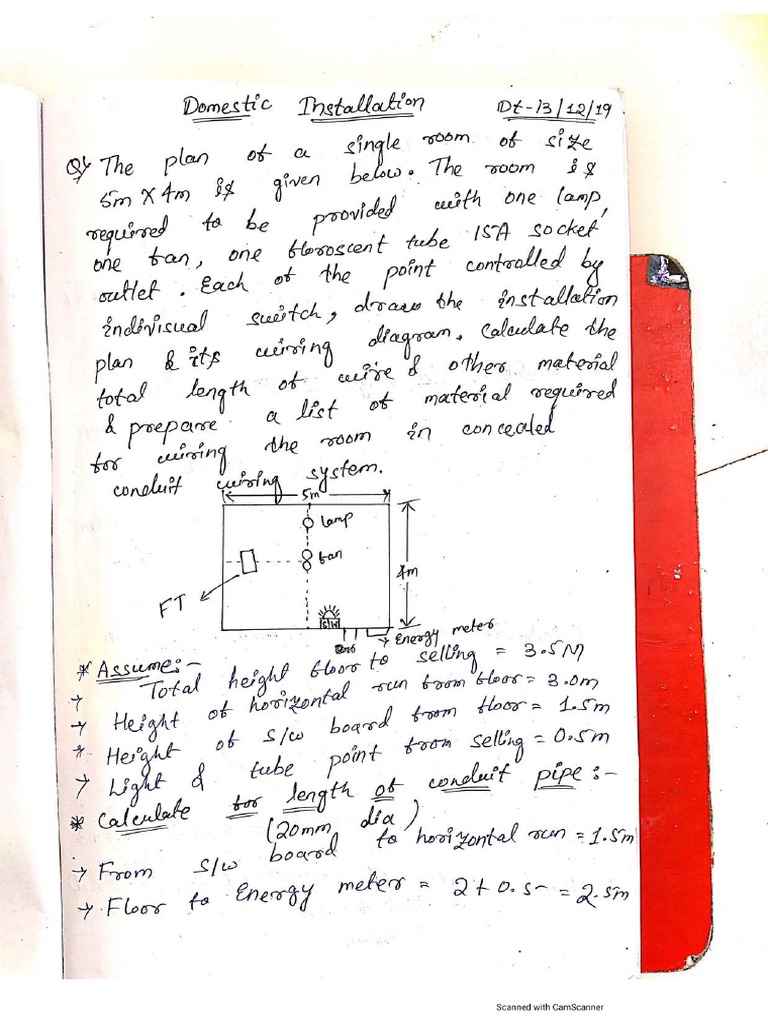 Domestic Installation Dt-13/12/19
Q/ The plan of a single room of size
5m X 4m is given below. The room is
required to be provided with one lamp,
one fan, one floroscent tube 15A socket
outlet. Each of the point controlled by
indivisual switch, draw the installation
plan & its wiring diagram. Calculate the
total length of wire & other material
& prepare a list of material required
for wiring the room in concealed
conduit wiring system.
5m
lamp
fan
4m
FT
S/W
Energy meter
* Assume:-
→ Total height floor to selling = 3.5M
→ Height of horizontal run from floor = 3.0m
* Height of s/w board from floor = 1.5m
→ Light & tube point from selling = 0.5m
* Calculate for length of conduit pipe :-
(20mm dia)
→ From s/w board to horizontal run = 1.5m
→ Floor to Energy meter = 2+0.5 = 2.5m
Scanned with CamScanner